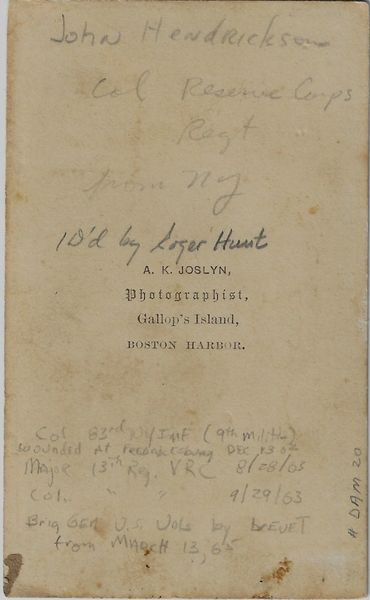 John Hendrickson
Col Reserve Corps
Regt
from NY
ID'd by Roger Hunt
A. K. JOSLYN,
Photographist,
Gallop's Island,
BOSTON HARBOR.
Col 83rd NY Inf (9th Militia)
wounded at Fredericksburg DEC 13 62
Major 13th Reg. VRC 8/28/63
Col. " " 9/29/63
Brig GEN U.S. Vols by brevet
from MARCH 13, 65
# DAM 20